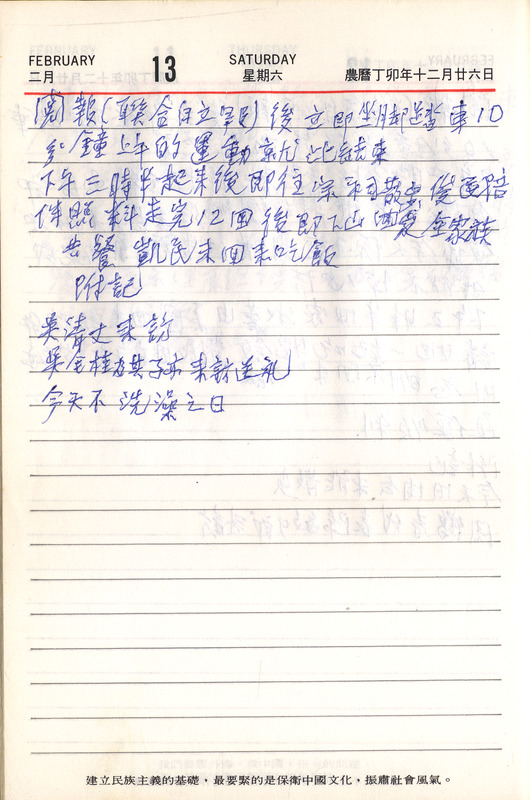 FEBRUARY 13 SATURDAY
二月 星期六 農曆丁卯年十二月廿六日
閱報(聯合自立全民)後立即坐脚踏車10
分鐘上午的運動就此結束
下午三時半起來後即往宗祠散步後面陪
伴照料走完12回後即下山酒宴全家族
共餐 凱民未回來吃飯
附記
吳清文來訪
吳金桂及其子亦來訪送礼
今天不洗澡之日
建立民族主義的基礎，最要緊的是保衛中國文化，振肅社會風氣。